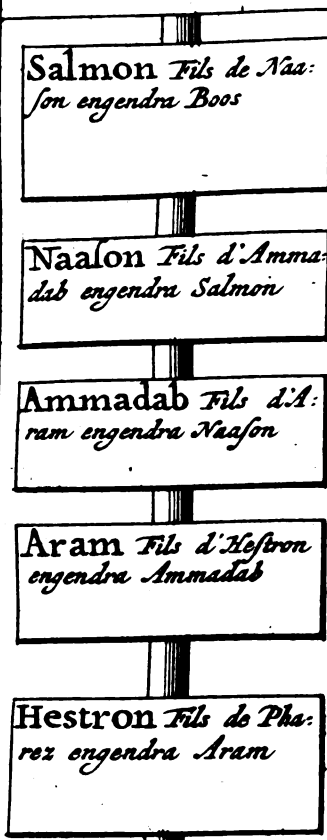 Salmon Fils de Naa:
ſon engendra Boos
Naaſon Fils d'Amma:
dab engendra Salmon
Ammadab Fils d'A:
ram engendra Naaſon
Aram Fils d'Heſtron
engendra Ammadab
Hestron Fils de Pha:
rez engendra Aram